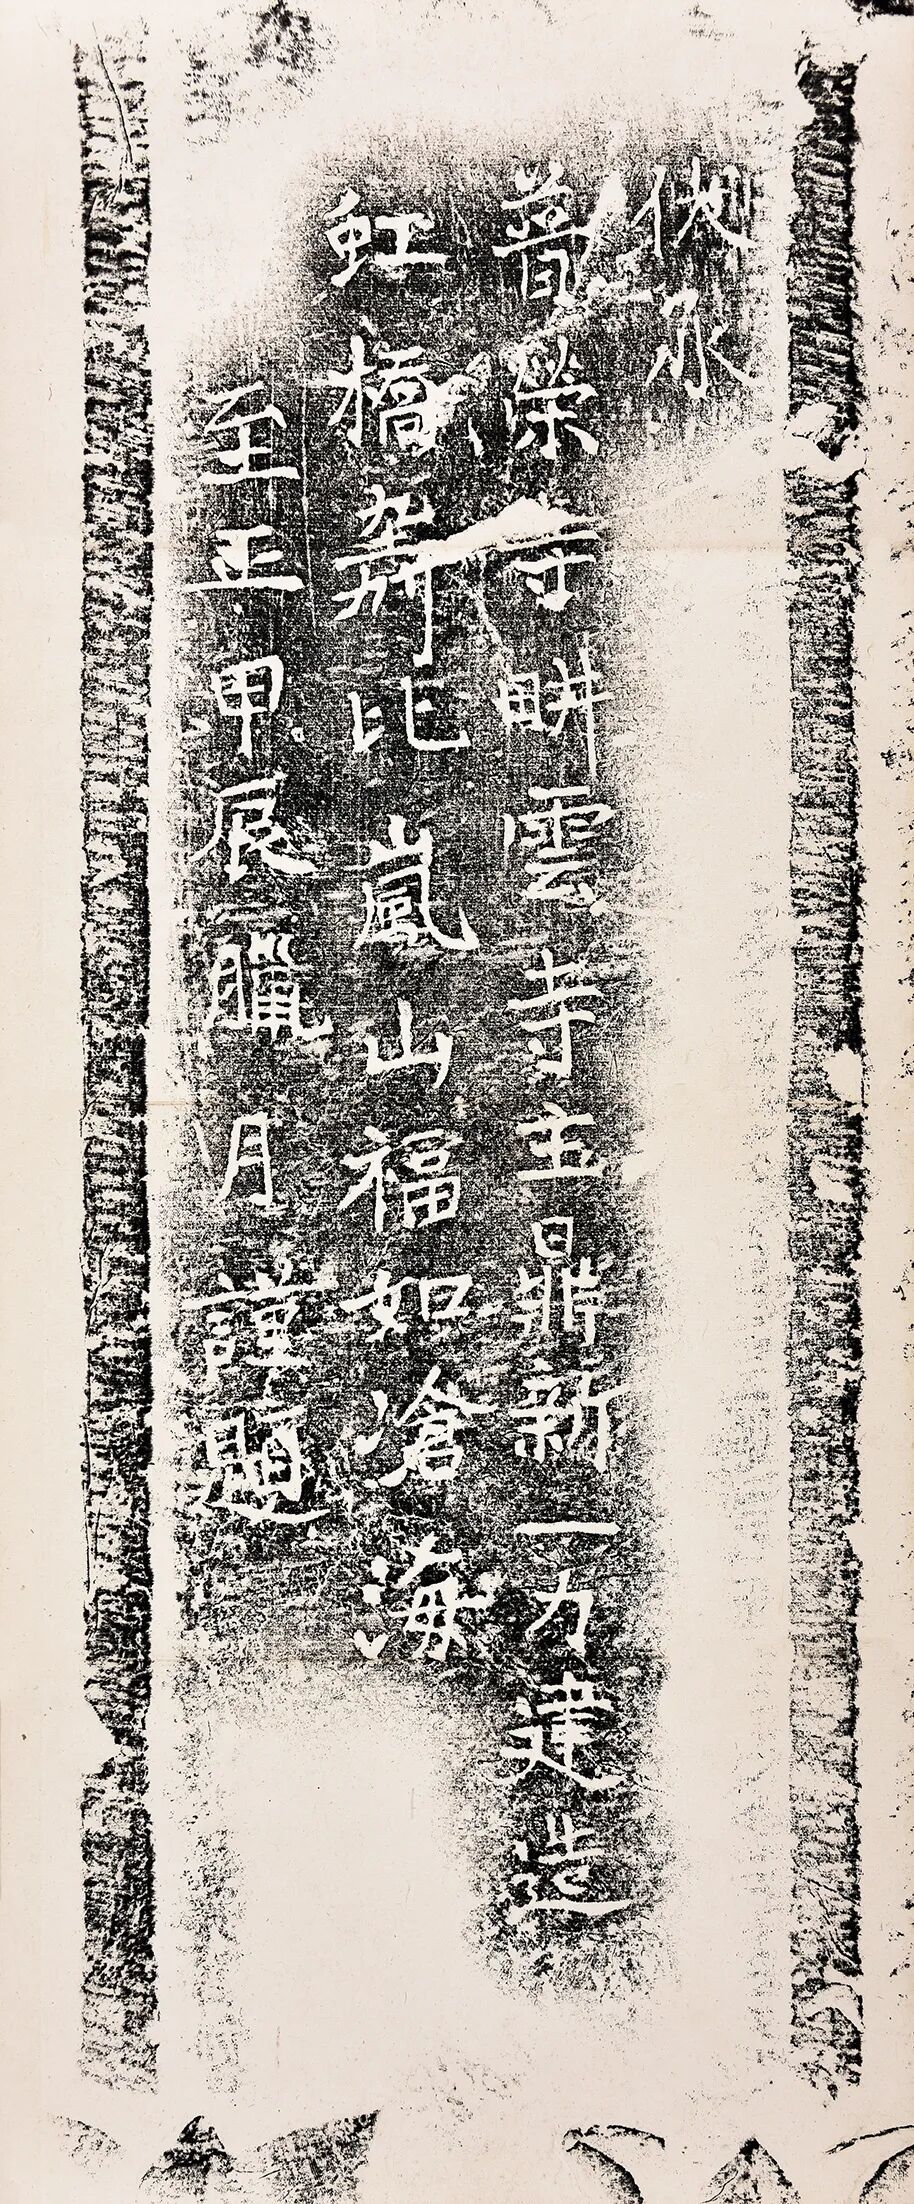 普榮寺畊雲寺主鼎新一力建造
虹橋壽比嵐山福如滄海
至正甲辰臘月謹題